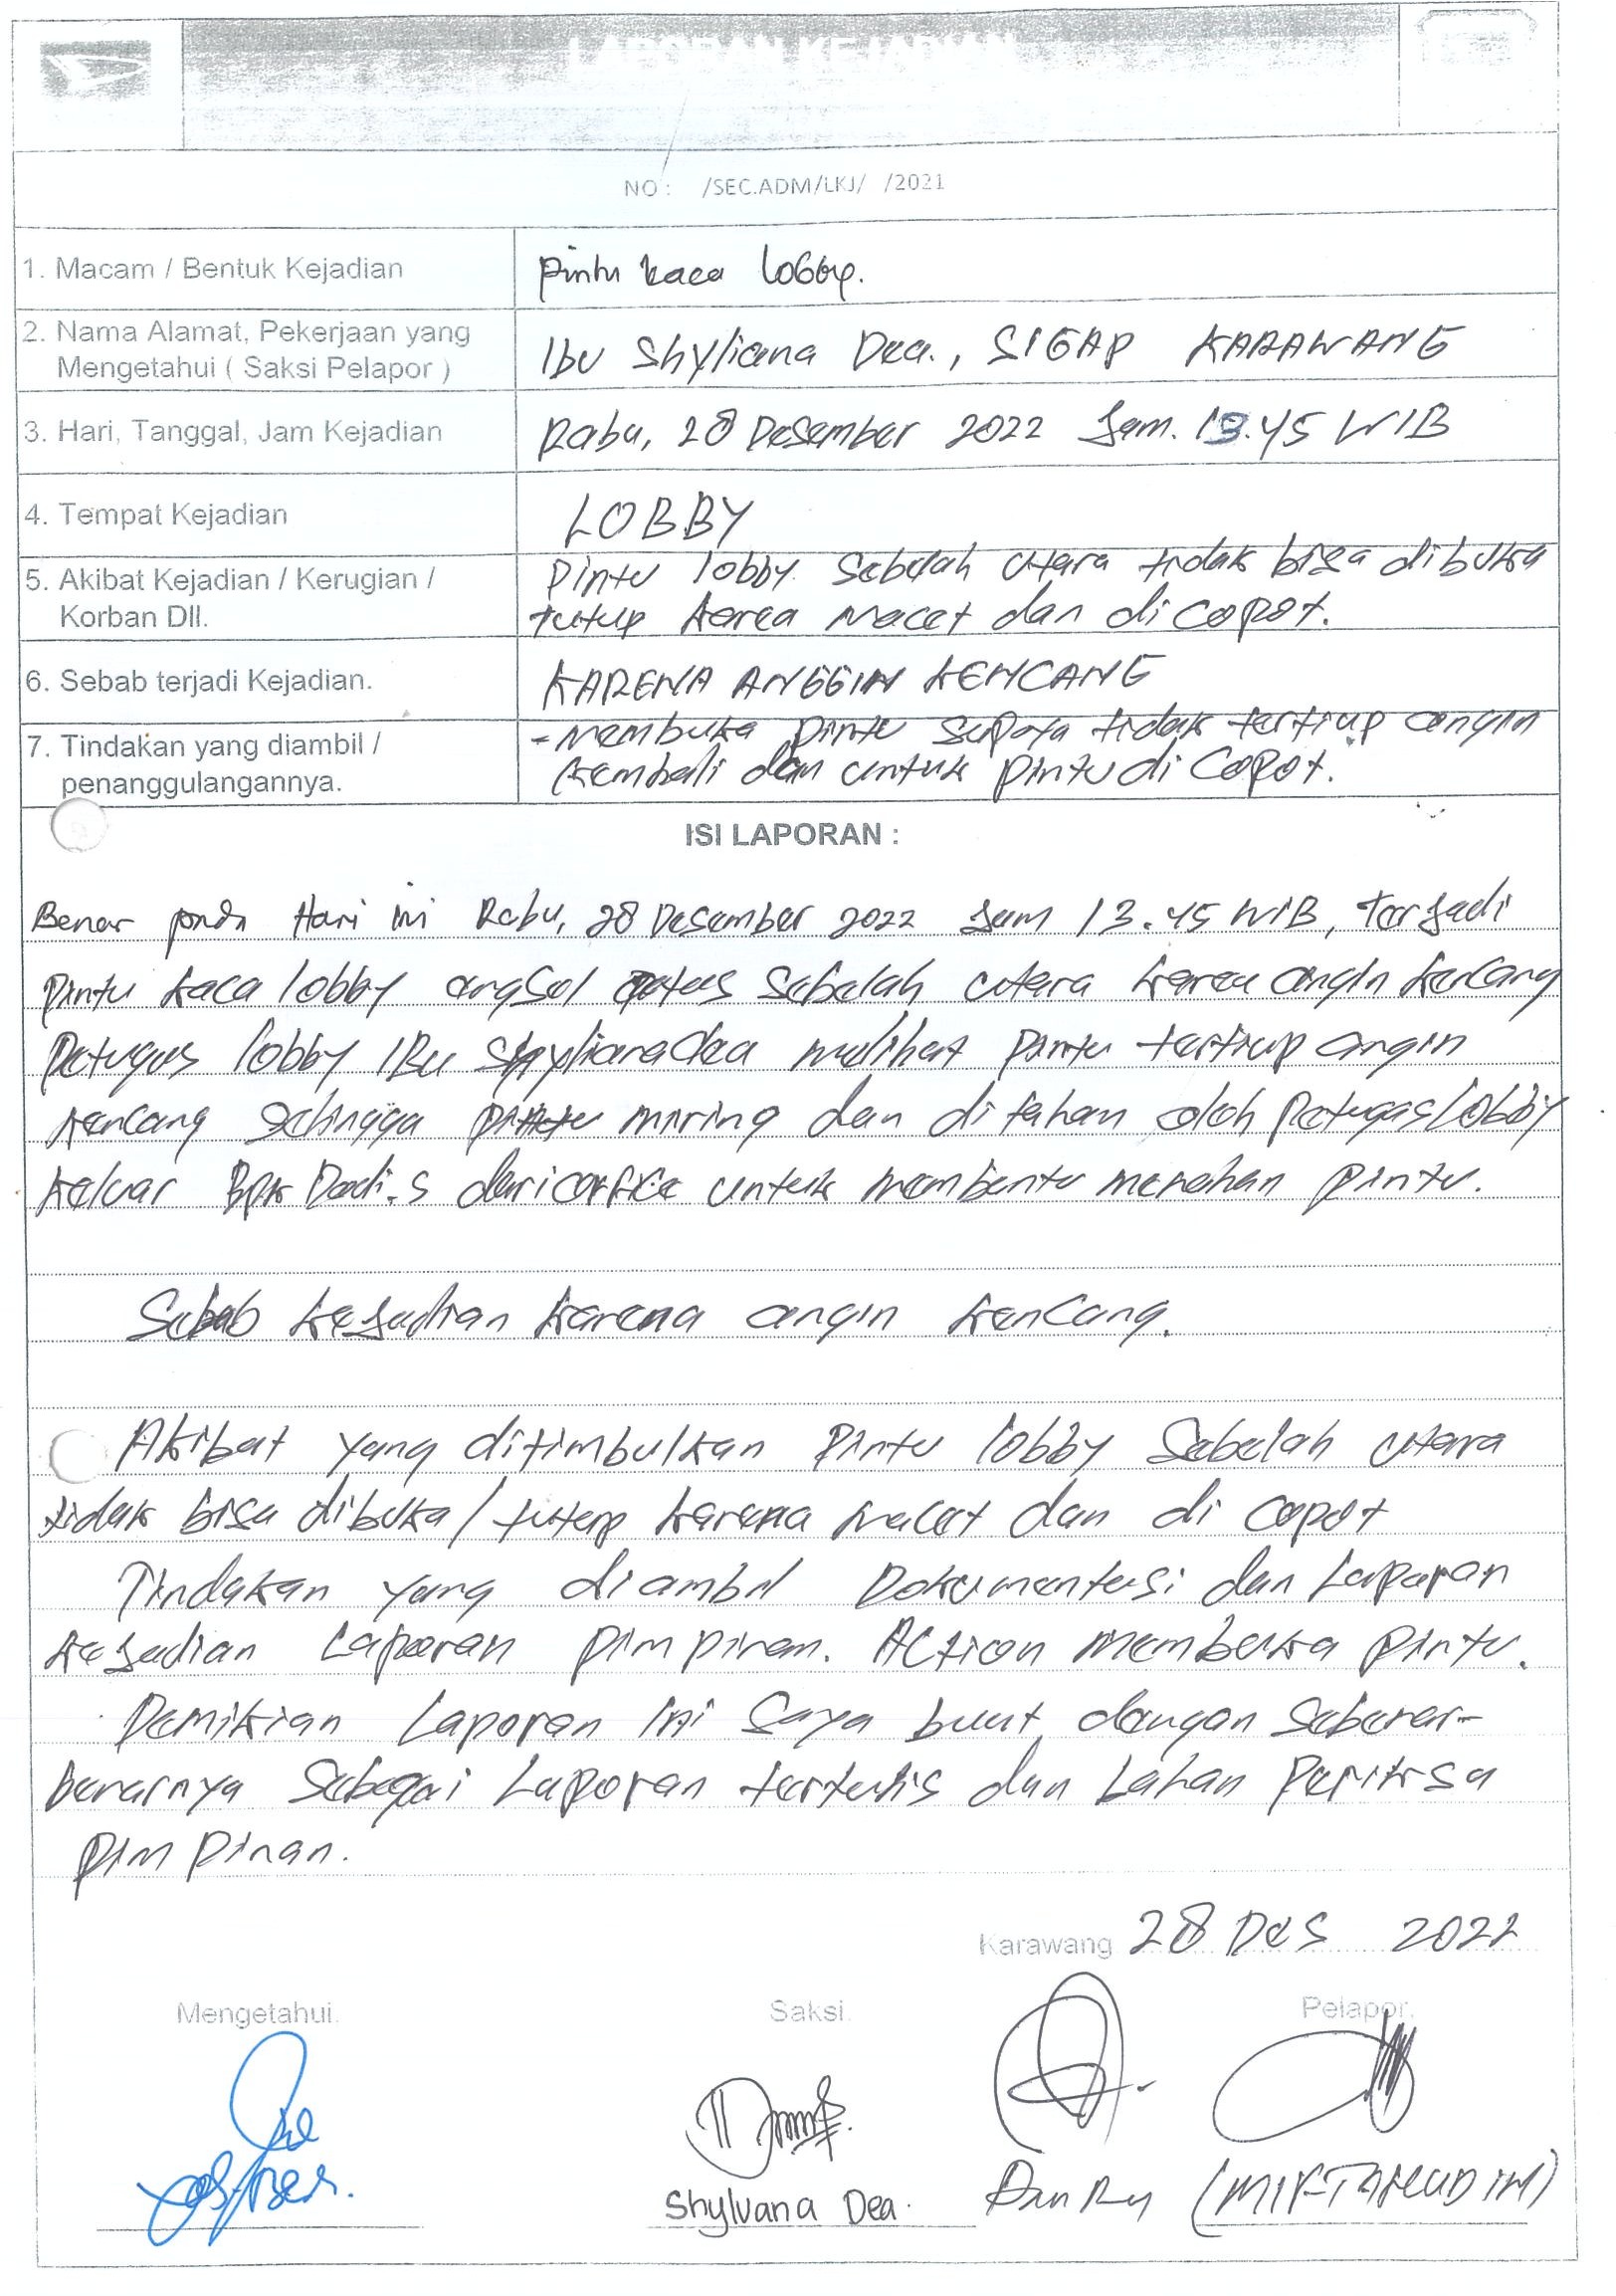 LAPORAN KEJADIAN
NO : /SEC.ADM/LKJ/ /2021
1. Macam / Bentuk Kejadian
pintu kaca lobby.
2. Nama Alamat, Pekerjaan yang
Mengetahui ( Saksi Pelapor )
Ibu Shyliana Dea., SIGAP KARAWANG
3. Hari, Tanggal, Jam Kejadian
Rabu, 28 Desember 2022 Jam. 13.45 WIB
4. Tempat Kejadian
LOBBY
5. Akibat Kejadian / Kerugian /
Korban Dll.
Pintu lobby sebelah utara tidak bisa dibuka
tutup karea macet dan di copot.
6. Sebab terjadi Kejadian.
KARENA ANGGIN KENCANG
7. Tindakan yang diambil /
penanggulangannya.
- membuka pintu supaya tidak tertiup angin
kembali dan untuk pintu di copot.
ISI LAPORAN :
Benar pada Hari ini Rabu, 28 Desember 2022 Jam 13.45 WIB, terjadi
pintu kaca lobby angsol atas sebelah utara karea angin kencang
Petugas lobby IBu Shylianadea melihat pintu tertiup angin
kencang sehingga pintu miring dan di tahan oleh petugas lobby
keluar Bpk Dedi.S dari office untuk membantu menahan pintu.
Sebab kejadian karena angin kencang.
Akibat yang ditimbulkan Pintu lobby Sebelah utara
tidak bisa dibuka/tutup karena macet dan di copot
Tindakan yang diambil Dokumentasi dan Laporan
kejadian Laporan pimpinan. Action membuka pintu.
Demikian Laporan ini saya buat dengan sebenar-
benarnya sebagai Laporan tertulis dan Lahan Periksa
pimpinan.
Karawang 28 Des 2022
Mengetahui. Saksi. Pelapor.
Shylvana Dea. DanRu (MIFTAHUDIN)